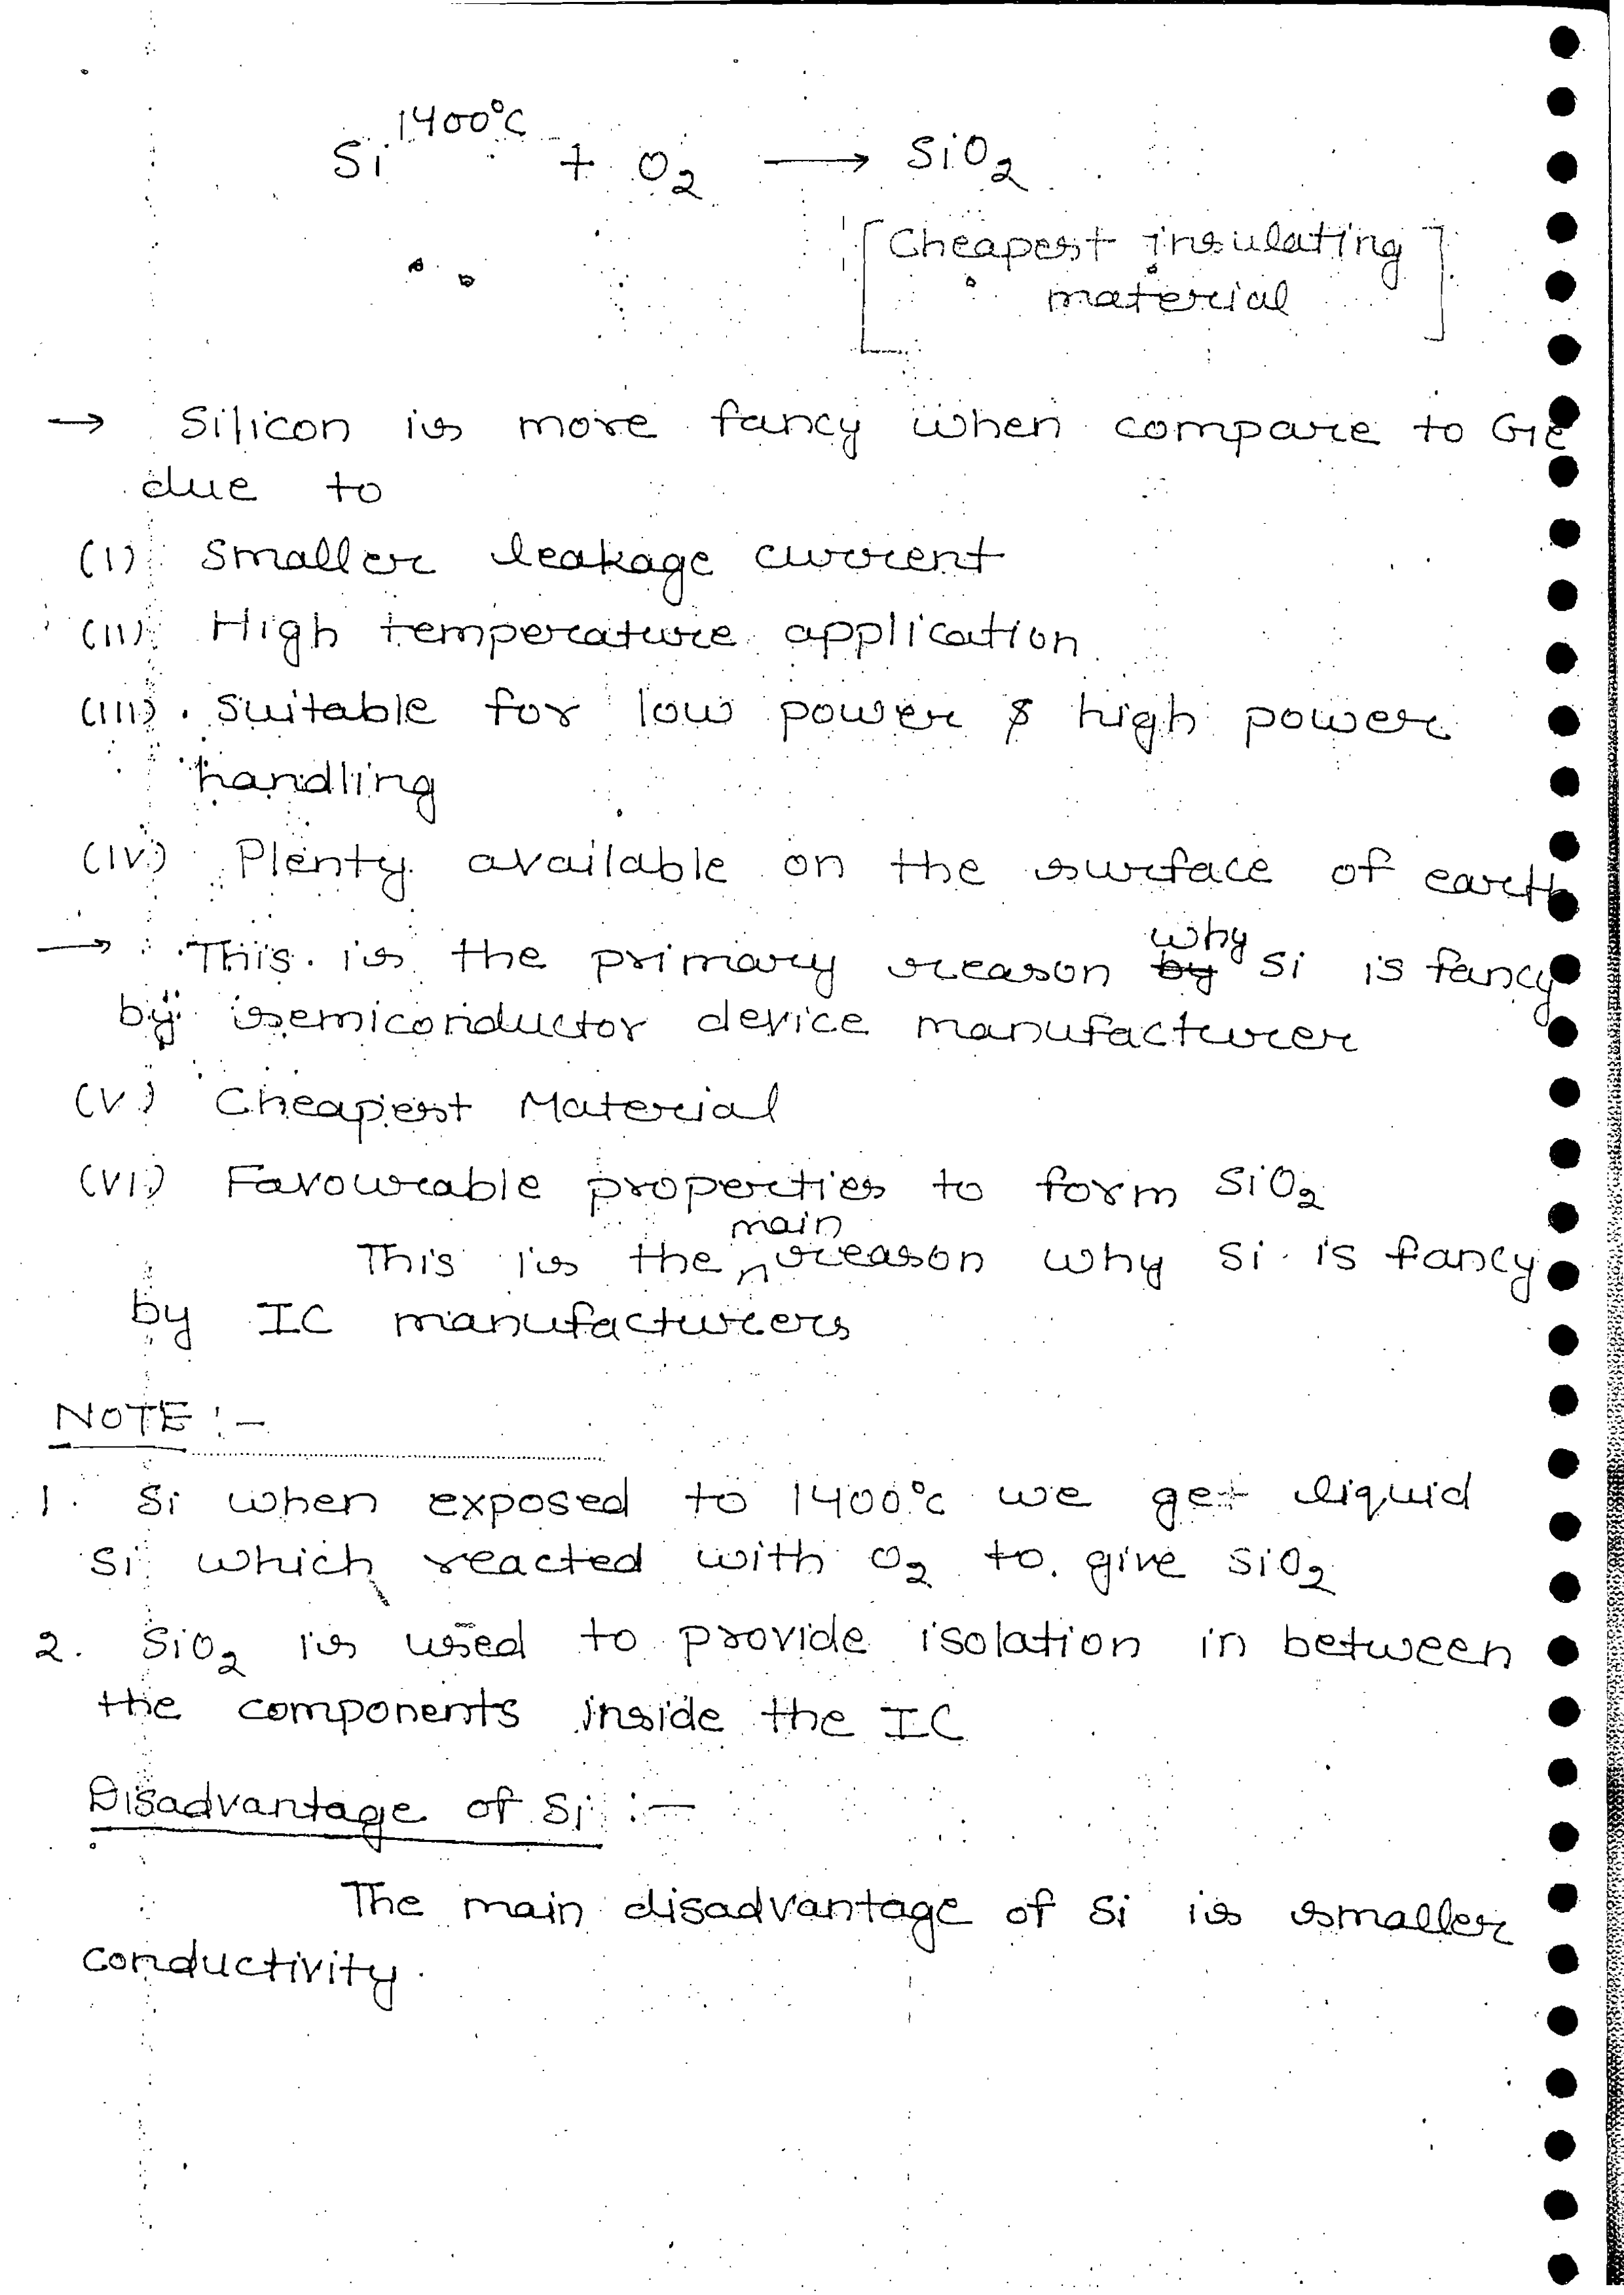 Si 1400°C + O2 → SiO2
[Cheapest insulating
material]
→ Silicon is more fancy when compare to Ge
due to
(I) Smaller leakage current
(II) High temperature application
(III) Suitable for low power & high power
handling
(IV) Plenty available on the surface of earth
→ This is the primary reason by why Si is fancy
by semiconductor device manufacturer
(V) Cheapest Material
(VI) Favourable properties to form SiO2
This is the main reason why Si is fancy
by IC manufacturers
NOTE :-
1. Si when exposed to 1400°C we get liquid
Si which reacted with O2 to give SiO2
2. SiO2 is used to provide isolation in between
the components inside the IC
Disadvantage of Si :-
The main disadvantage of Si is smaller
conductivity.